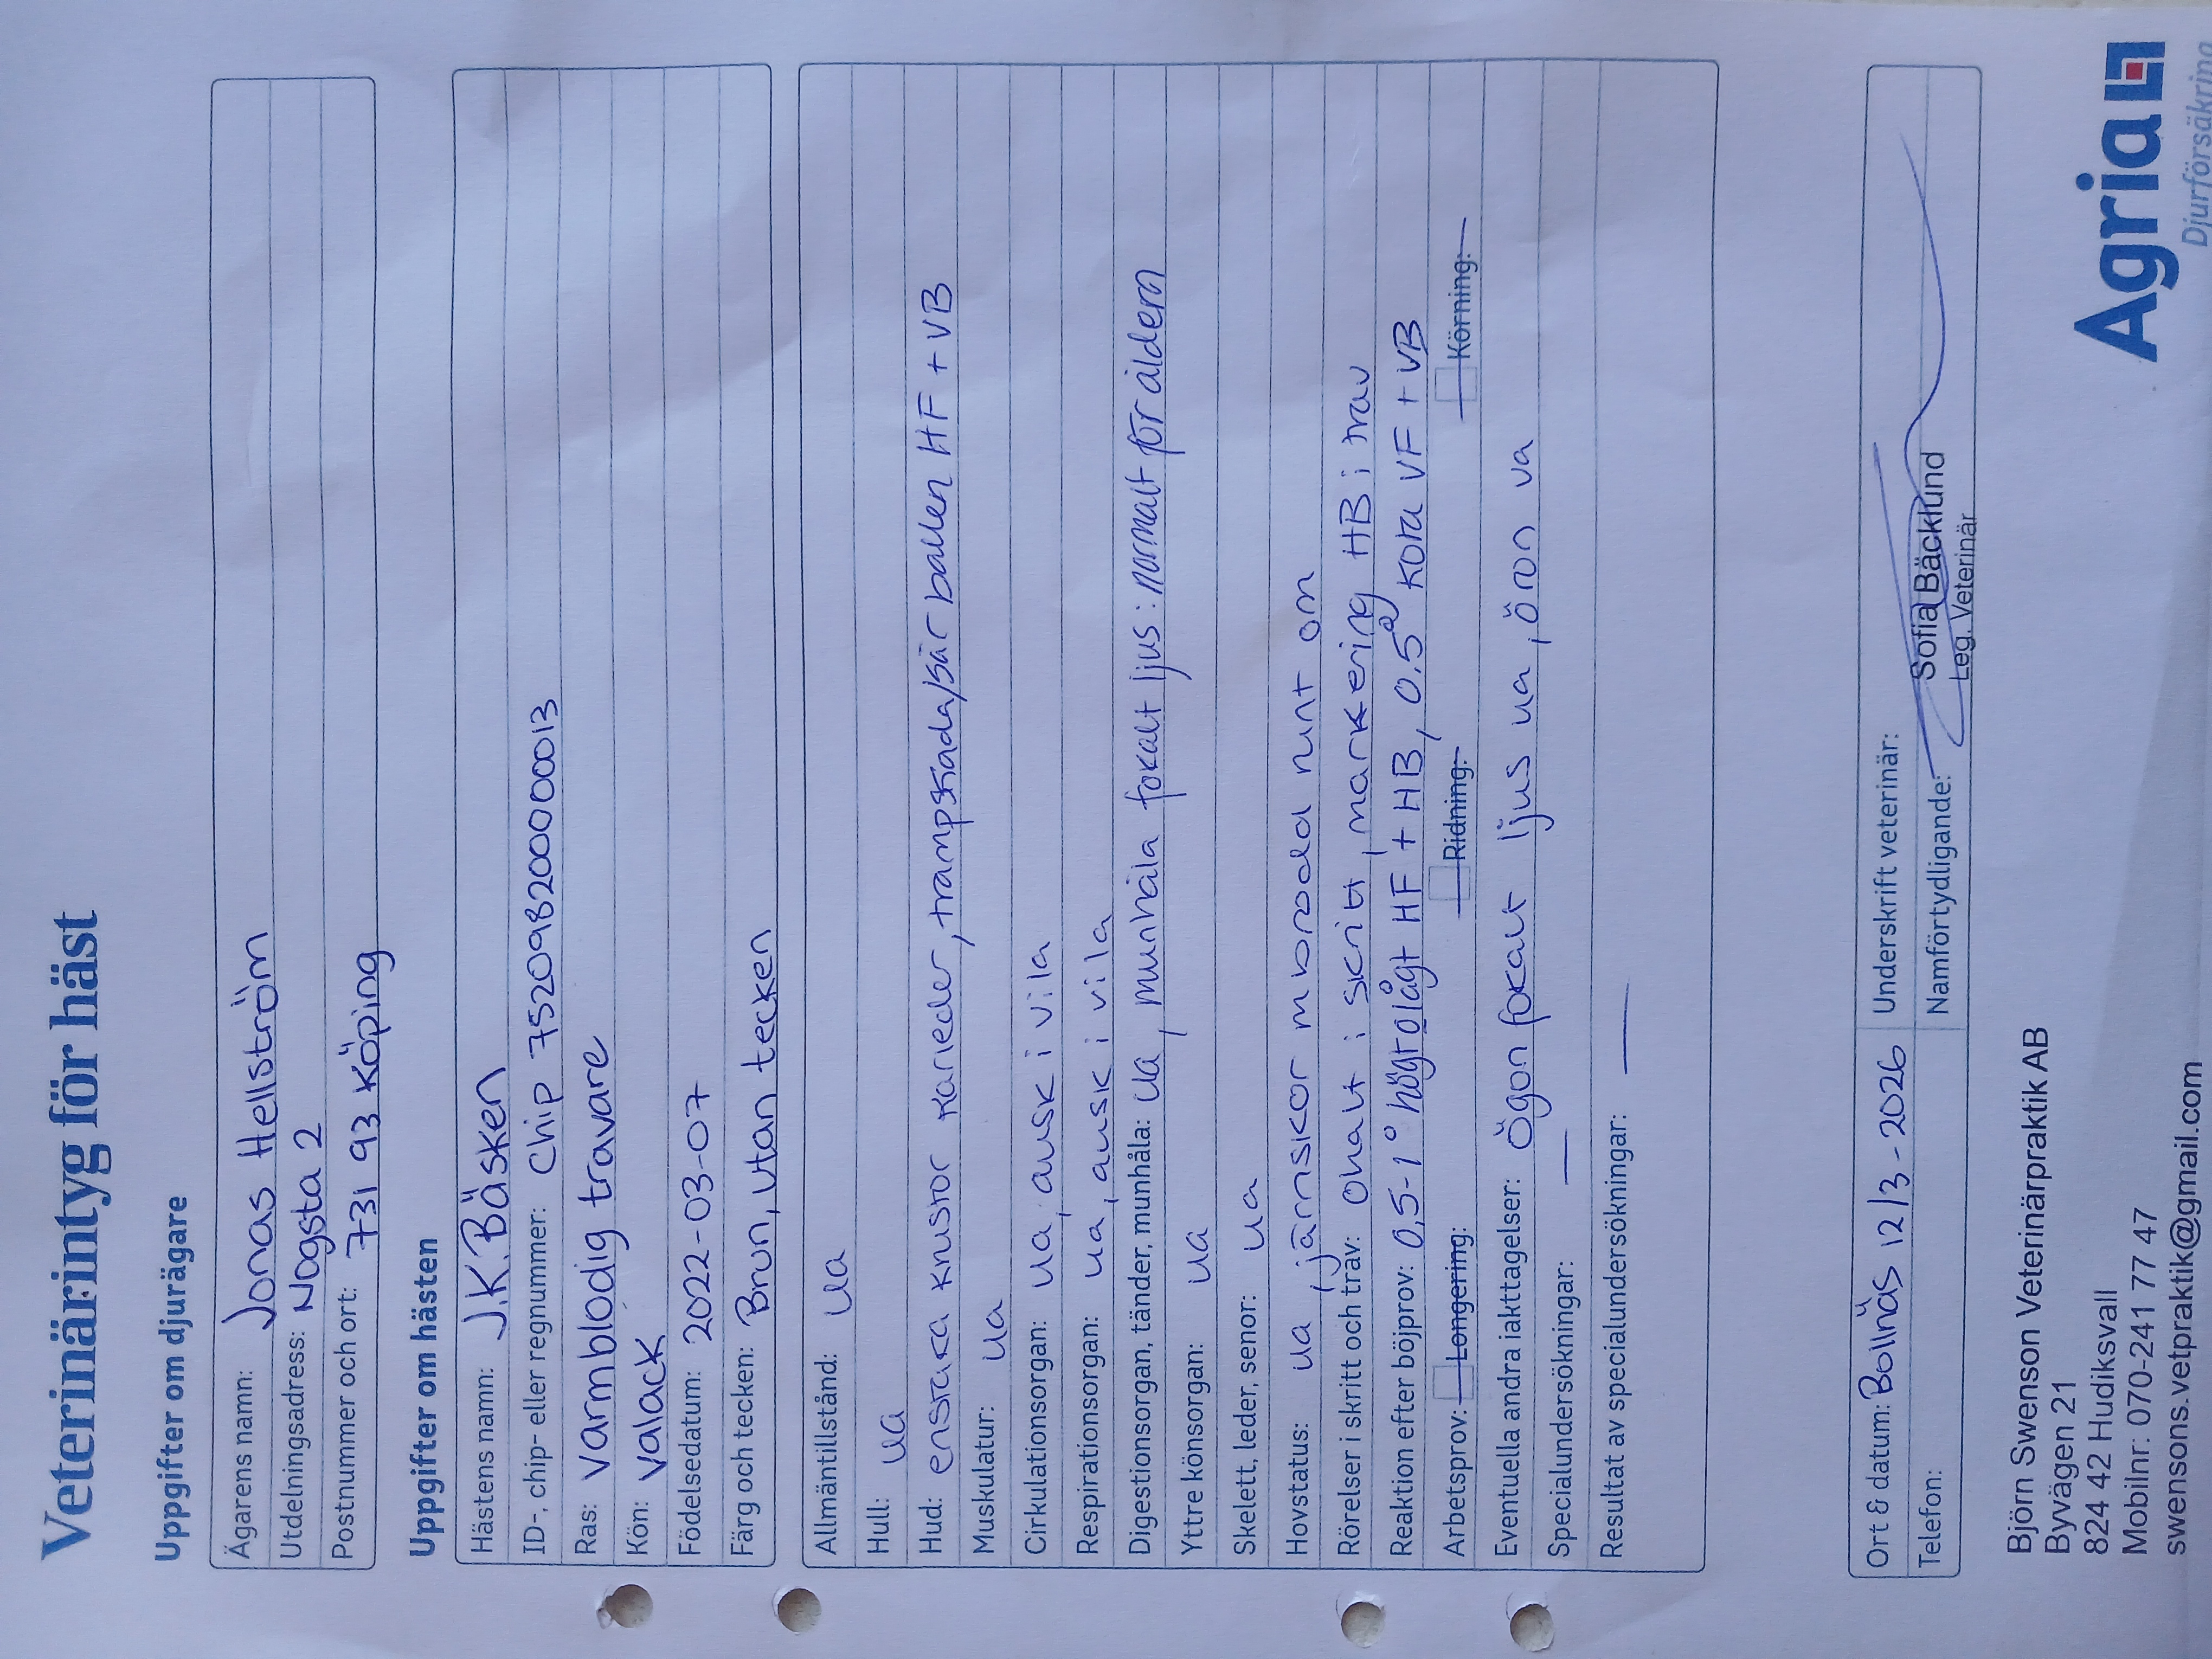 Veterinärintyg för häst
Uppgifter om djurägare
Ägarens namn: Jonas Hellström
Utdelningsadress: Nogsta 2
Postnummer och ort: 731 93 Köping
Uppgifter om hästen
Hästens namn: J.K. Bäsken
ID-, chip- eller regnummer: Chip 752098200000013
Ras: Varmblodig travare
Kön: Valack
Födelsedatum: 2022-03-07
Färg och tecken: Brun, utan tecken
Allmäntillstånd: ua
Hull: ua
Hud: enstaka krustor karleder, trampskada/sår ballen HF + VB
Muskulatur: ua
Cirkulationsorgan: ua, ausk i vila
Respirationsorgan: ua, ausk i vila
Digestionsorgan, tänder, munhåla: ua, munhåla fokalt ljus: normalt för åldern
Yttre könsorgan: ua
Skelett, leder, senor: ua
Hovstatus: ua, järnskor m brodd runt om
Rörelser i skritt och trav: Ohalt i skritt, markering HB i trav
Reaktion efter böjprov: 0,5-1° högt o lågt HF + HB, 0,5° kota VF + VB
Arbetsprov: Longering: Ridning: Körning:
Eventuella andra iakttagelser: Ögon fokalt ljus ua, öron ua
Specialundersökningar: —
Resultat av specialundersökningar: —
Ort & datum: Bollnäs 12/3-2026
Underskrift veterinär:
Telefon:
Namnförtydligande: Sofia Bäcklund
Leg. Veterinär
Björn Swenson Veterinärpraktik AB
Byvägen 21
824 42 Hudiksvall
Mobilnr: 070-241 77 47
swensons.vetpraktik@gmail.com
Agria
Djurförsäkring